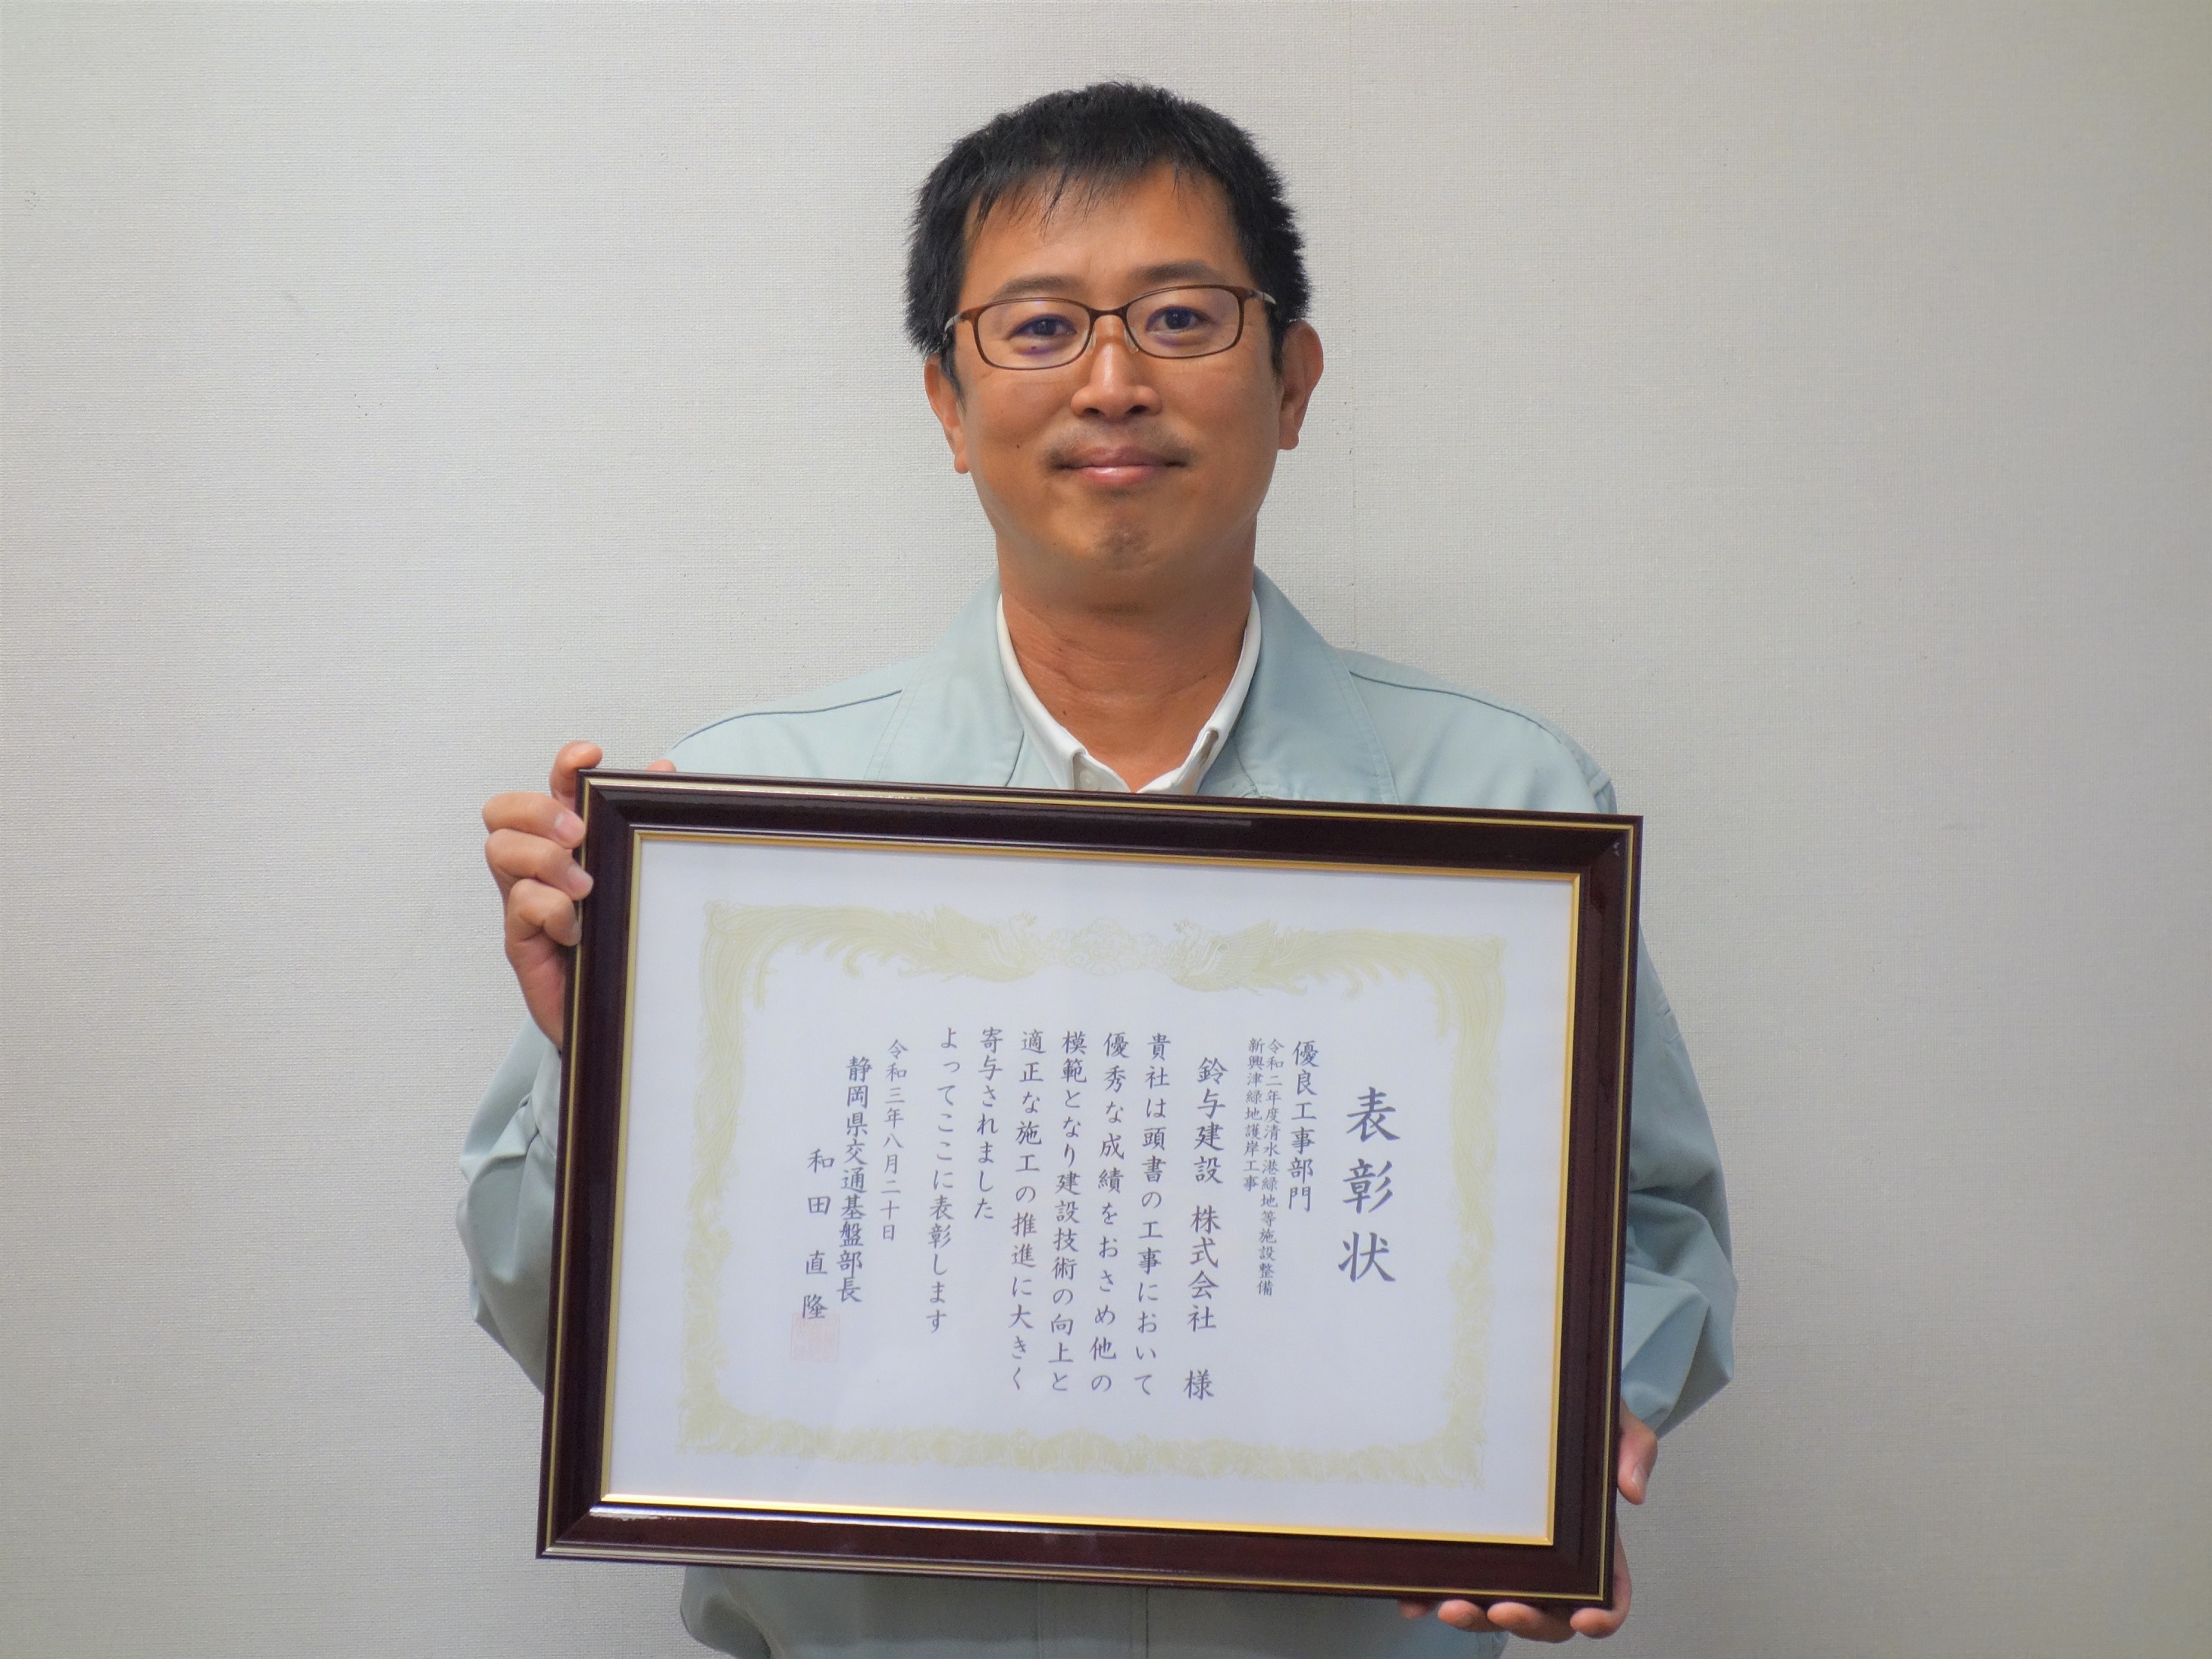 表彰状
優良工事部門
令和二年度清水港緑地等施設整備
新興津緑地護岸工事
鈴与建設 株式会社 様
貴社は頭書の工事において
優秀な成績をおさめ他の
模範となり建設技術の向上と
適正な施工の推進に大きく
寄与されました
よってここに表彰します
令和三年八月二十日
静岡県交通基盤部長
和田 直隆